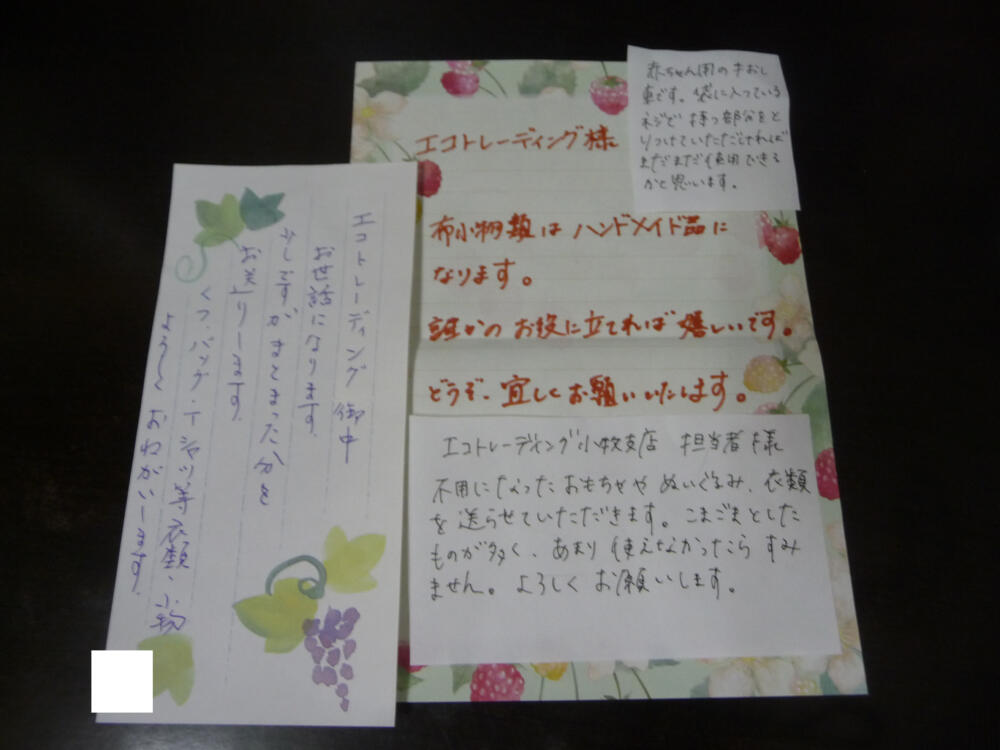 エコトレーディング御中
お世話になります。
少しですが、まとまった分を
お送りします。
くつ、バッグ・Tシャツ等衣類・小物
よろしくおねがいします。
エコトレーディング様
布小物類はハンドメイド品に
なります。
誰かのお役に立てれば嬉しいです。
どうぞ、宜しくお願いいたします。
赤ちゃん用の手おし
車です。袋に入っている
ネジで持つ部分をと
りつけていただければ
まだまだ使用できる
かと思います。
エコトレーディング小牧支店 担当者様
不用になったおもちゃやぬいぐるみ、衣類
を送らせていただきます。こまごまとした
ものが多く、あまり使えなかったらすみ
ません。よろしくお願いします。